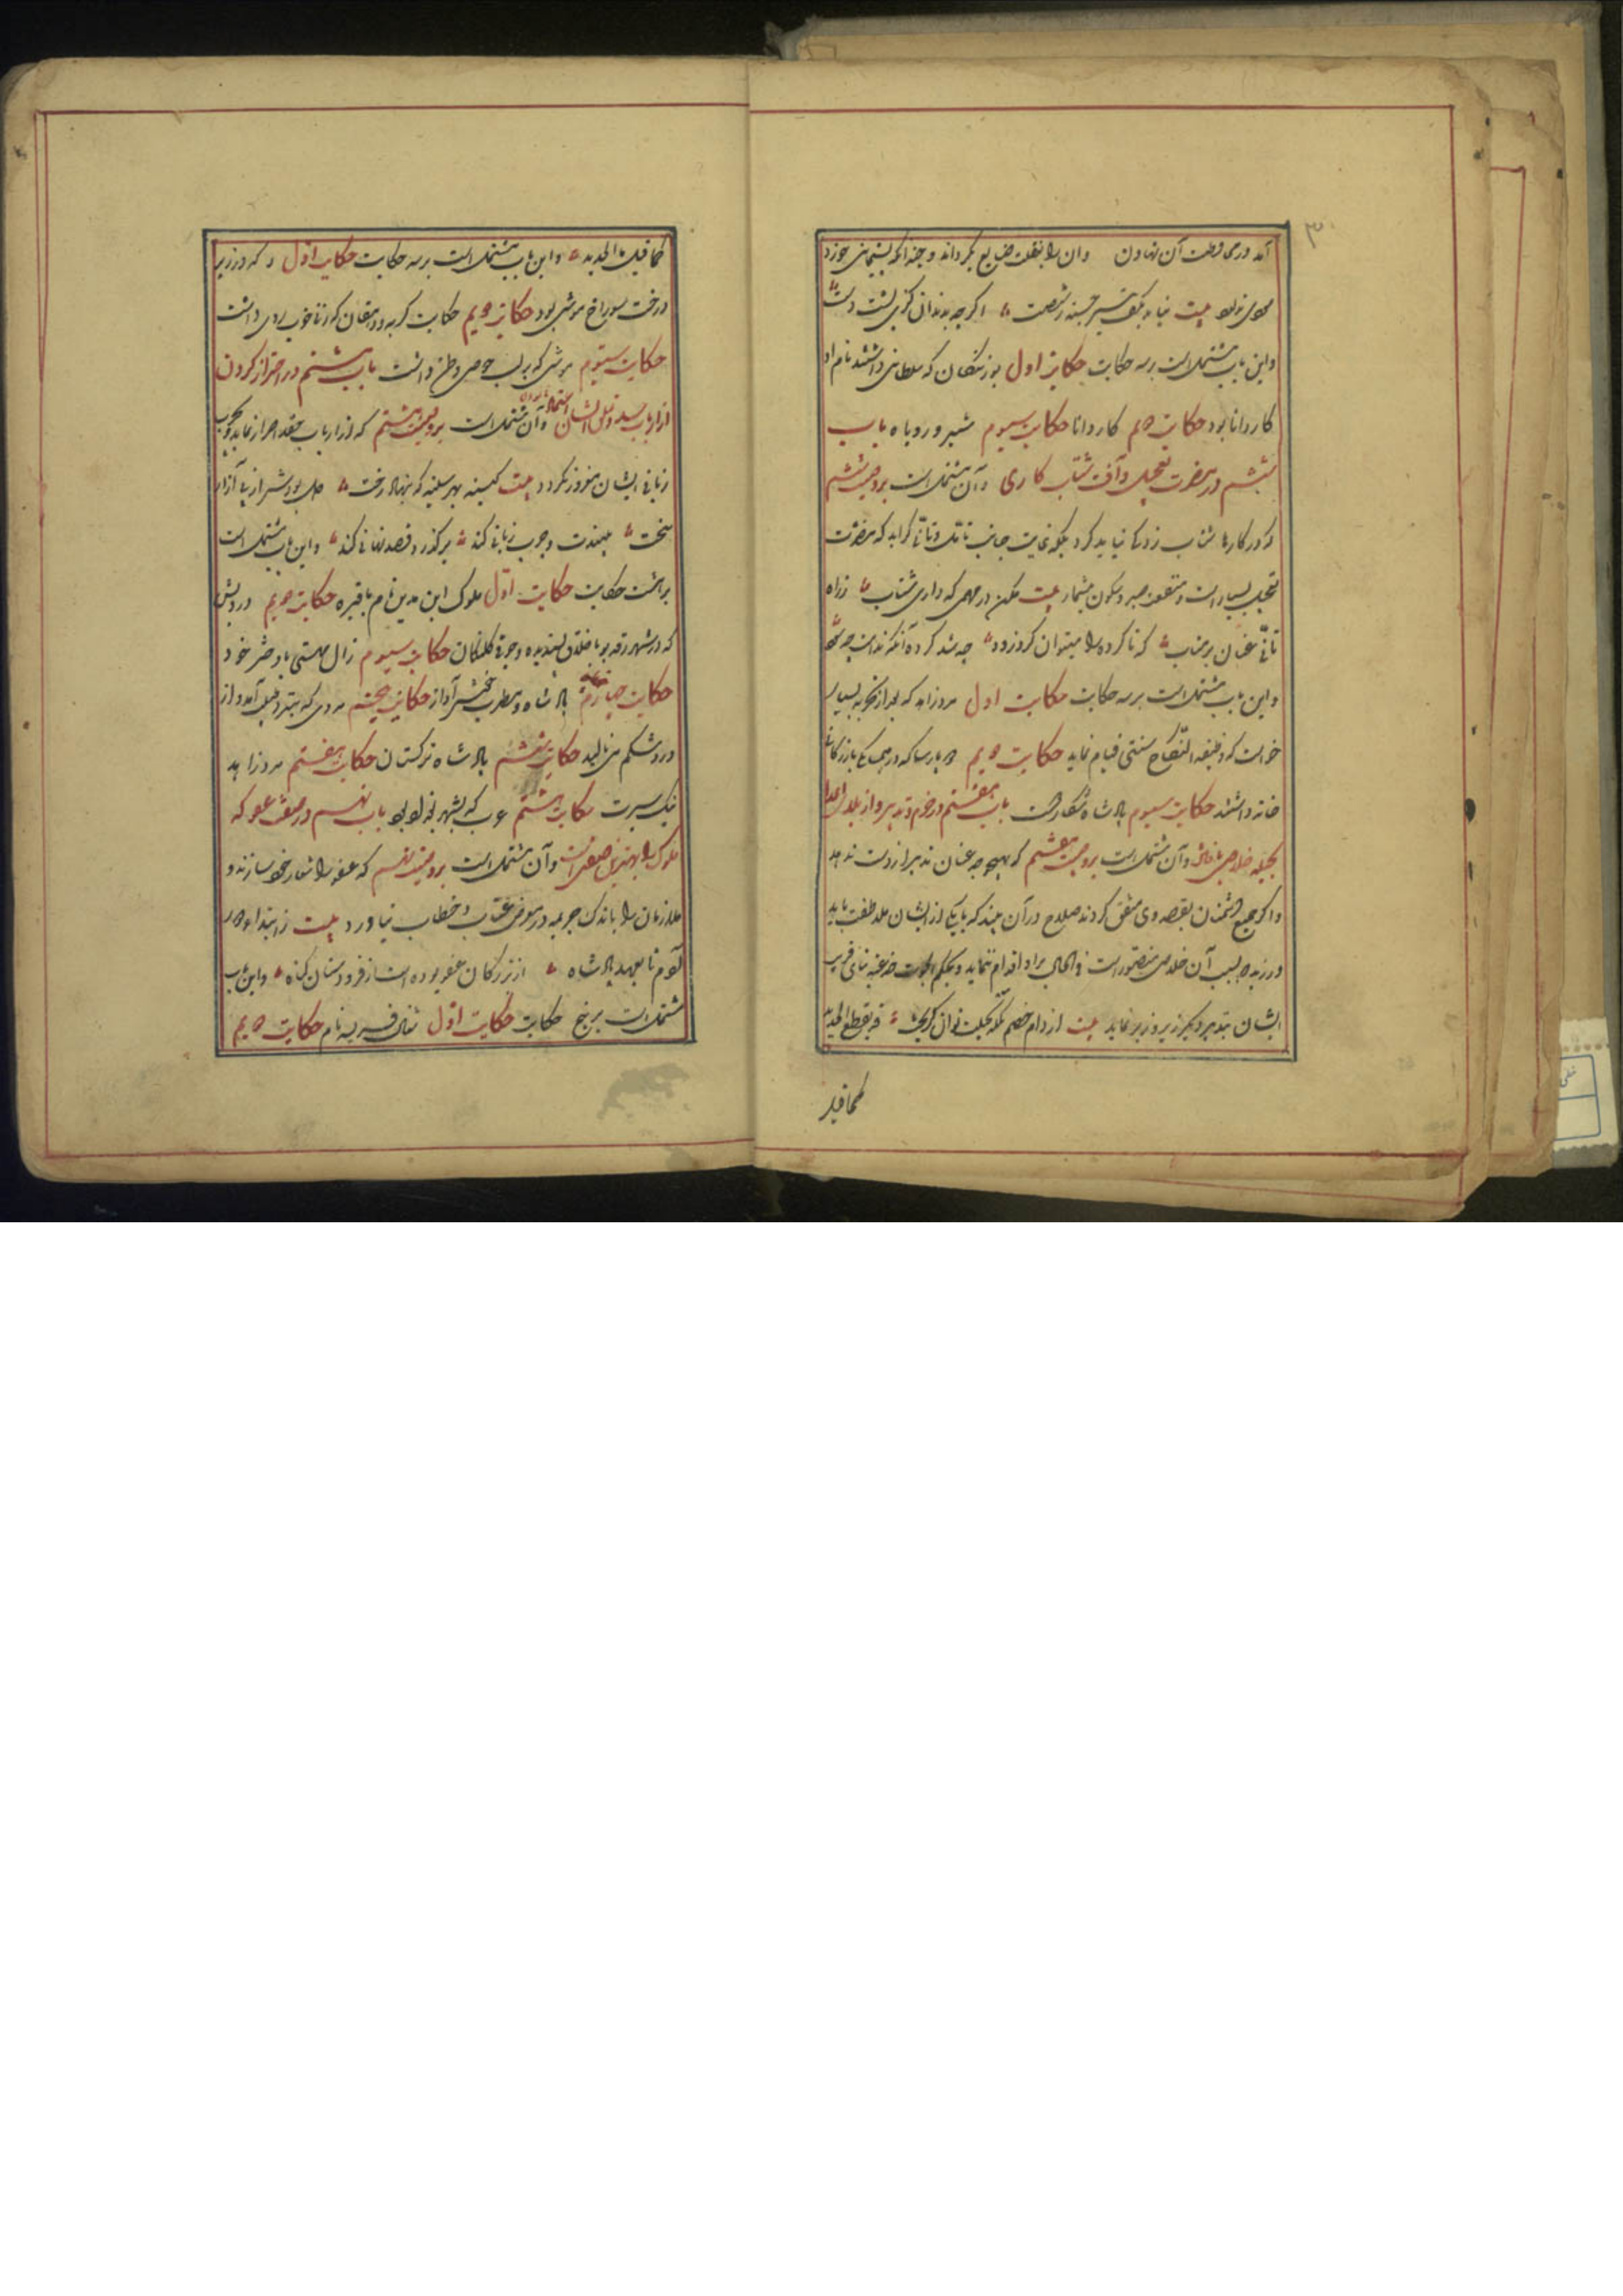 ۳
آمد در محافظت آن تهاون و آن را بغفلت ضایع گرداند و چندانکه پشیمانی خورد
سودی ندارد بیت نیاید بکف تیر جسته ز شست ؞ اگرچه بدندان گزی پشت دست
و این باب مشتمل است بر سه حکایت حکایت اول بوزنگان که سلطانی داشتند نام او
کاردانا بود حکایت دویم کاردانا حکایت سیوم شیر و روباه باب
ششم در مضرت تعجیل و آفت شتاب کاری و آن مشتمل است بر وصیت ششم
که در کارها شتاب زدگی نباید کرد بلکه بجانب تامّل و تانّی گراید که مضرت
تعجیل بسیار است و منفعت صبر و سکون بیشمار بیت مکن در مهمی که داری شتاب ؞ ز راه
تانّی عنان برمتاب ؞ که ناکرده را میتوان کرد زود ؞ چه شد کرده آنگه ندامت چه سود
و این باب مشتمل است بر سه حکایت حکایت اول مرد زاهد که بعد از تجربه بسیار
خواست که وظیفه النکاح سنتی قیام نماید حکایت دویم پارسا که در همسایگی بازرگانی
خانه داشتند حکایت سیوم پادشاه شکار دوست باب هفتم در حزم و تدبیر و از بلای اعدا
بحیله خلاصی یافتن و آن مشتمل است بر وصیت هفتم که بهیچ وجه عنان تدبیر از دست ندهد
و اگر جمیع دشمنان بقصد وی متفق گردند صلاح در آن بیند که با یکی از ایشان ملاطفت باید
ورزید که بسبب آن خلاصی متصور است فی الحال بر آن اقدام نماید و بحکم الحرب خدعه بنای فریب
ایشان بتدبیر دیگر زیر و زبر نماید بیت از دام خصم جز بحیلت نتوان گریخت ؞ قد یقطع الحدید
کما قیل
کما قیل بالحدید ؞ و این باب مشتمل است بر سه حکایت حکایت اول که در زیر
درخت سوراخ موشی بود حکایت دویم حکایت گربه و دهقان که زنی خوب روی داشت
حکایت سیوم موشی که بر لب حوضی وطن داشت باب هشتم در احتراز کردن
از ارباب حسد و تملق ایشان اعتماد نا کردن و آن مشتمل است بر وصیت هشتم که از ارباب حقد احتراز نماید و بچرب
زبانی ایشان مغرور نگردد بیت کینه بهر سینه که بنهاد رخت ؞ دل بود بسر از آزار
سخت ؞ بیندت و چرب زبانی کند ؞ برگذرد و قصد نهانی کند ؞ و این باب مشتمل است
بر هشت حکایت حکایت اول ملوک ابن مدین نام با قبره حکایت دویم درویش
که در شهر رقه بود باخلاق پسندیده و جوقی کلنگان حکایت سیوم زال مهستی با دختر خود
حکایت چهارم پادشاه و مطرب خوش آواز حکایت پنجم مردی که بنزد طبیب آمد و از
درد شکم می نالید حکایت ششم پادشاه ترکستان حکایت هفتم مرد زاهد
نیک سیرت حکایت هشتم عرب که بشهر بغداد بود باب نهم در صفت عفو که
ملوک را بهترین صفتی است و آن مشتمل است بر وصیت نهم که عفو را شعار خود سازند و
ملازمان را باندک جریمه در معرض عتاب و خطاب نیاورد بیت ز ابتدای دور
آدم تا بعهد پادشاه ؞ از بزرگان عفو بوده است از فرودستان گناه ؞ و این باب
مشتمل است بر پنج حکایت حکایت اول شغال فریسه نام حکایت دویم